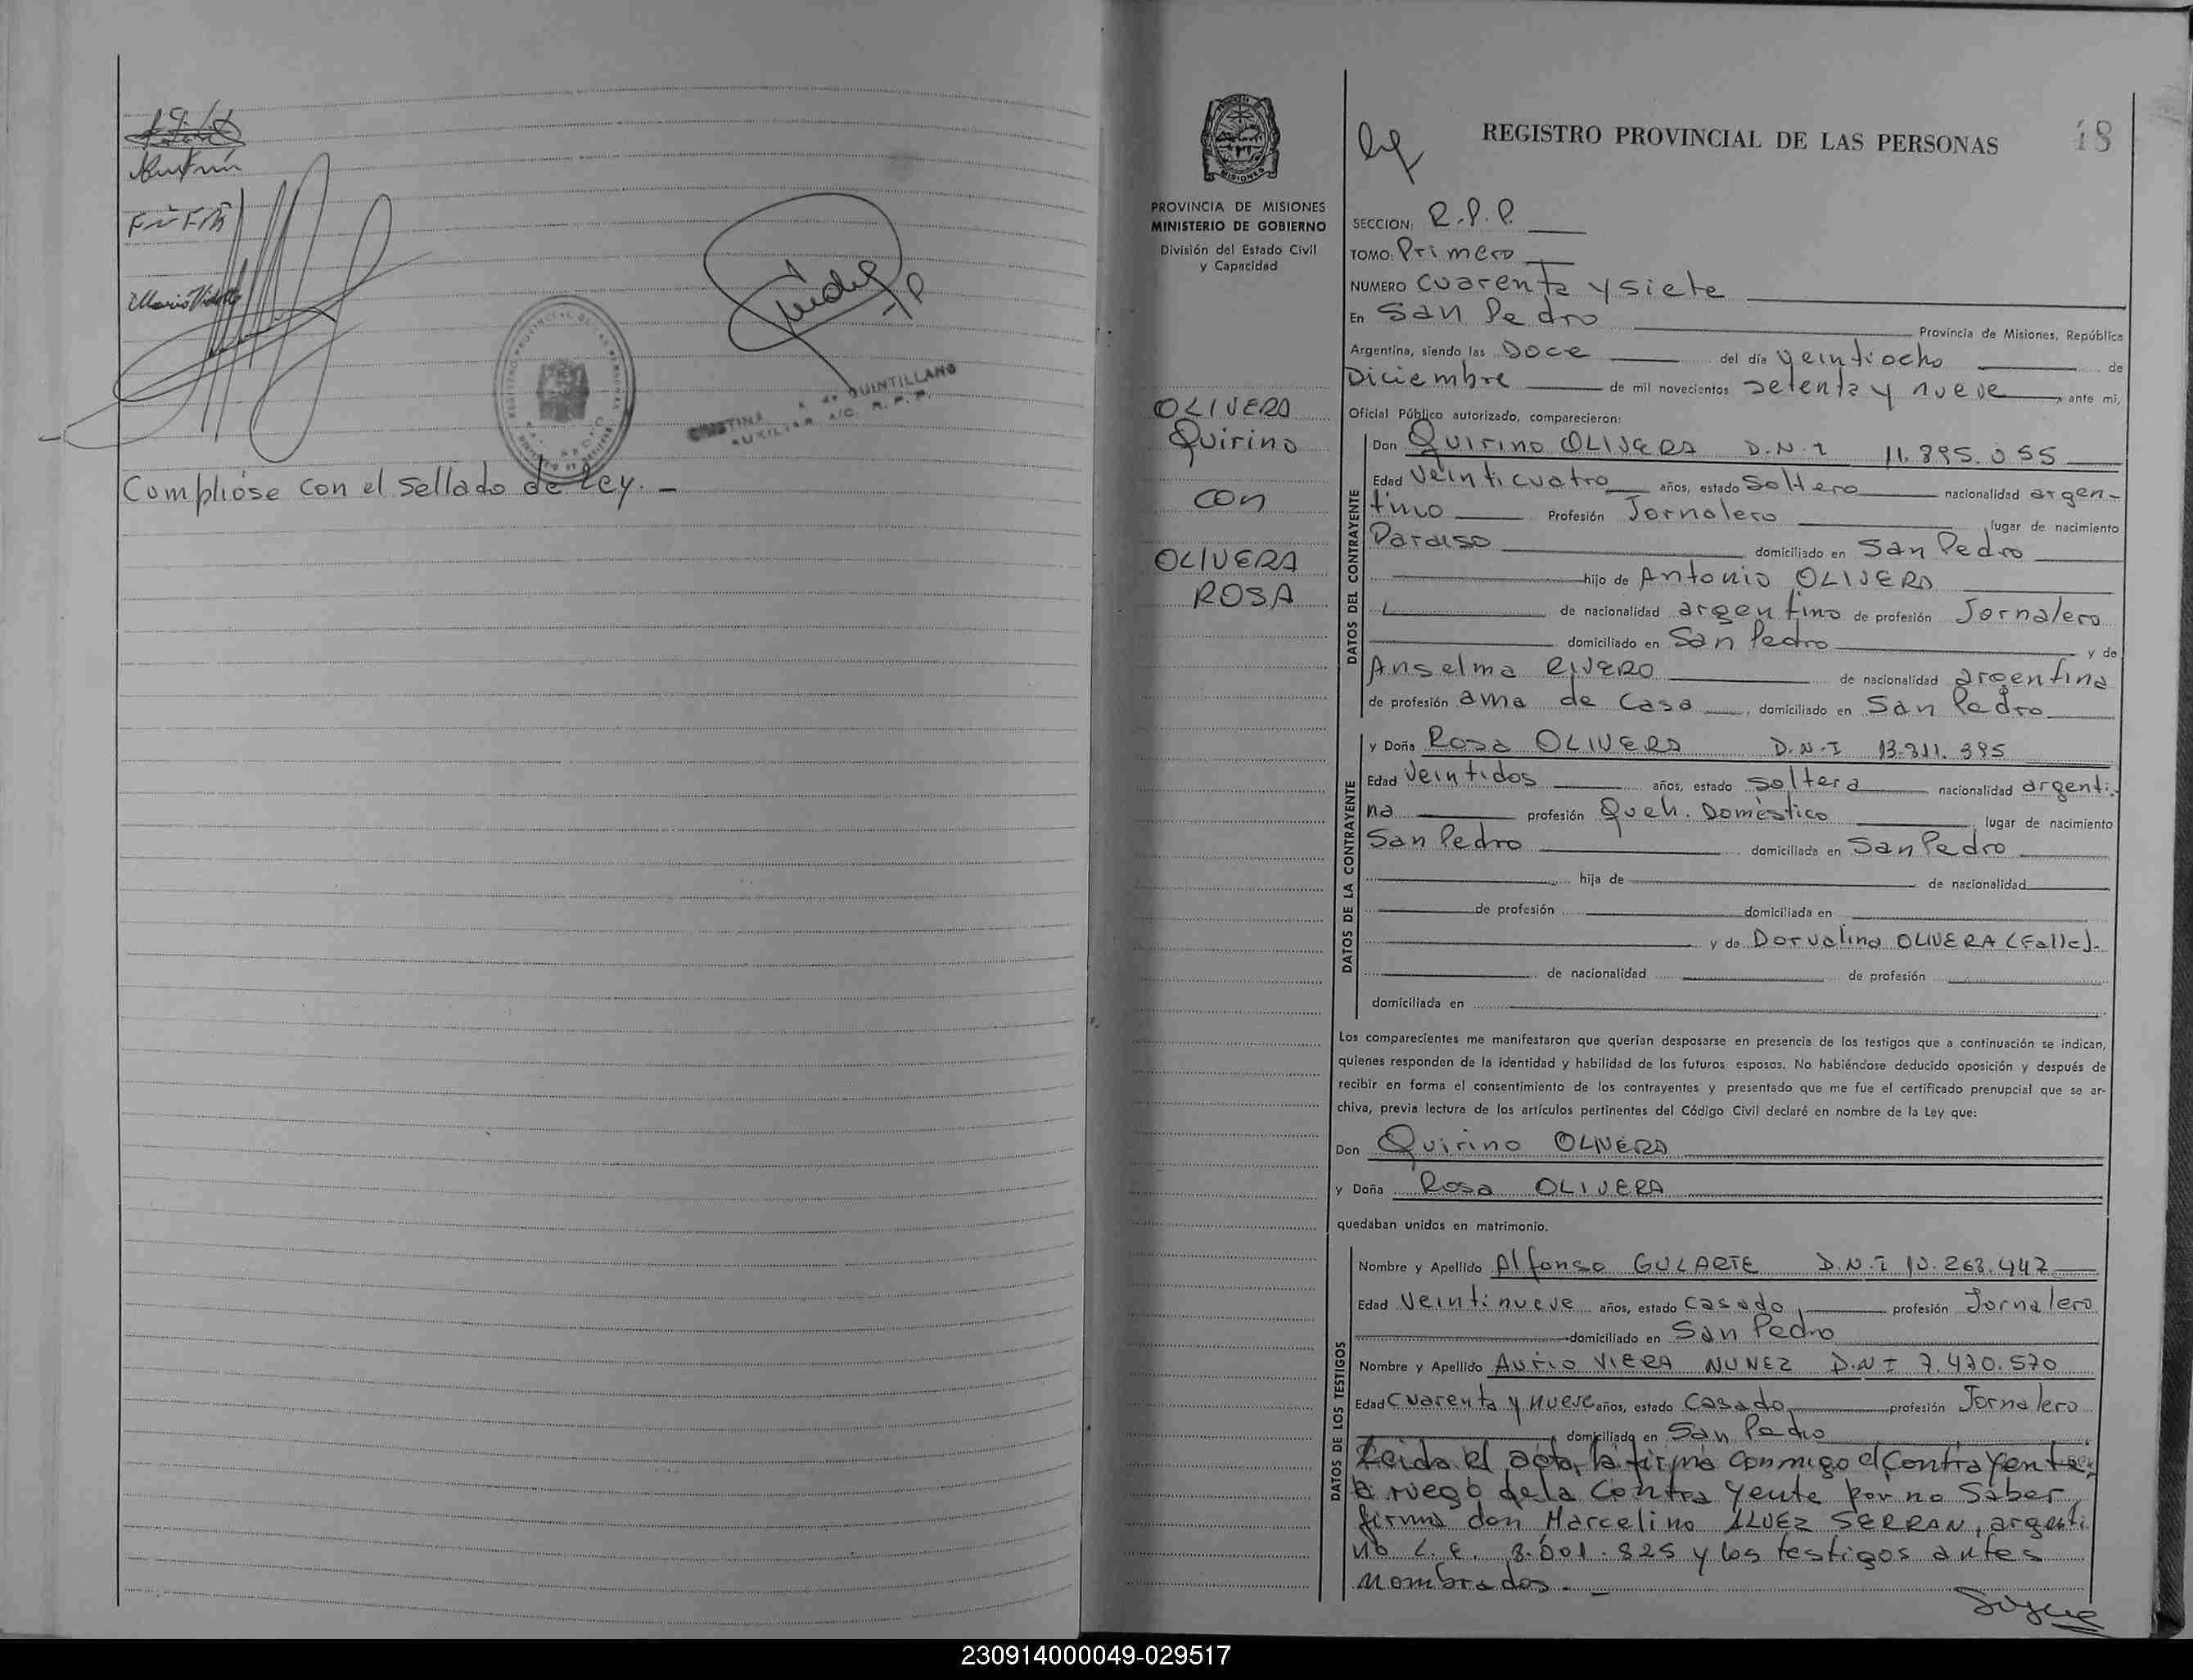 Mario Vidotto
CRISTINA K. de QUINTILLANO
AUXILIAR A/C. R. P. P.
Complióse con el sellado de ley. —
PROVINCIA DE MISIONES
MINISTERIO DE GOBIERNO
División del Estado Civil
y Capacidad
OLIVERA
Quirino
con
OLIVERA
ROSA
REGISTRO PROVINCIAL DE LAS PERSONAS 48
SECCION: R.P.P.
TOMO: Primero
NUMERO cuarenta y siete
En San Pedro Provincia de Misiones, República
Argentina, siendo las Doce del día veintiocho de
Diciembre de mil novecientos setenta y nueve, ante mi,
Oficial Público autorizado, comparecieron:
DATOS DEL CONTRAYENTE
Don Quirino OLIVERA D.N.I 11.895.055
Edad Veinticuatro años, estado Soltero nacionalidad argen-
tino Profesión Jornalero lugar de nacimiento
Paraiso domiciliado en San Pedro
hijo de Antonio OLIVERA
de nacionalidad argentino de profesión Jornalero
domiciliado en San Pedro y de
Anselma RIVERO de nacionalidad argentina
de profesión ama de casa, domiciliado en San Pedro
DATOS DE LA CONTRAYENTE
y Doña Rosa OLIVERA D.N.I 13.311.395
Edad Veintidos años, estado soltera nacionalidad argenti-
na profesión Queh. Doméstico lugar de nacimiento
San Pedro domiciliada en San Pedro
hija de de nacionalidad
de profesión domiciliada en
y de Dorvalina OLIVERA (Falle).
de nacionalidad de profesión
domiciliada en
Los comparecientes me manifestaron que querían desposarse en presencia de los testigos que a continuación se indican,
quienes responden de la identidad y habilidad de los futuros esposos. No habiéndose deducido oposición y después de
recibir en forma el consentimiento de los contrayentes y presentado que me fue el certificado prenupcial que se ar-
chiva, previa lectura de los artículos pertinentes del Código Civil declaré en nombre de la Ley que:
Don Quirino OLIVERA
y Doña Rosa OLIVERA
quedaban unidos en matrimonio.
DATOS DE LOS TESTIGOS
Nombre y Apellido Alfonso GULARTE D.N.I 10.263.442
Edad Veintinueve años, estado casado, profesión Jornalero
domiciliado en San Pedro
Nombre y Apellido Aurio VIERA NUNEZ D.N I 7.470.570
Edad Cuarenta y nueve años, estado Casado profesión Jornalero
domiciliado en San Pedro
Leida el acta, la firma conmigo el contrayente,
a ruego de la Contrayente por no saber
firma don Marcelino ALVEZ SERRAN, argenti
no L.E. 8.001.825 y los testigos antes
nombrados. —
Sigue
230914000049-029517